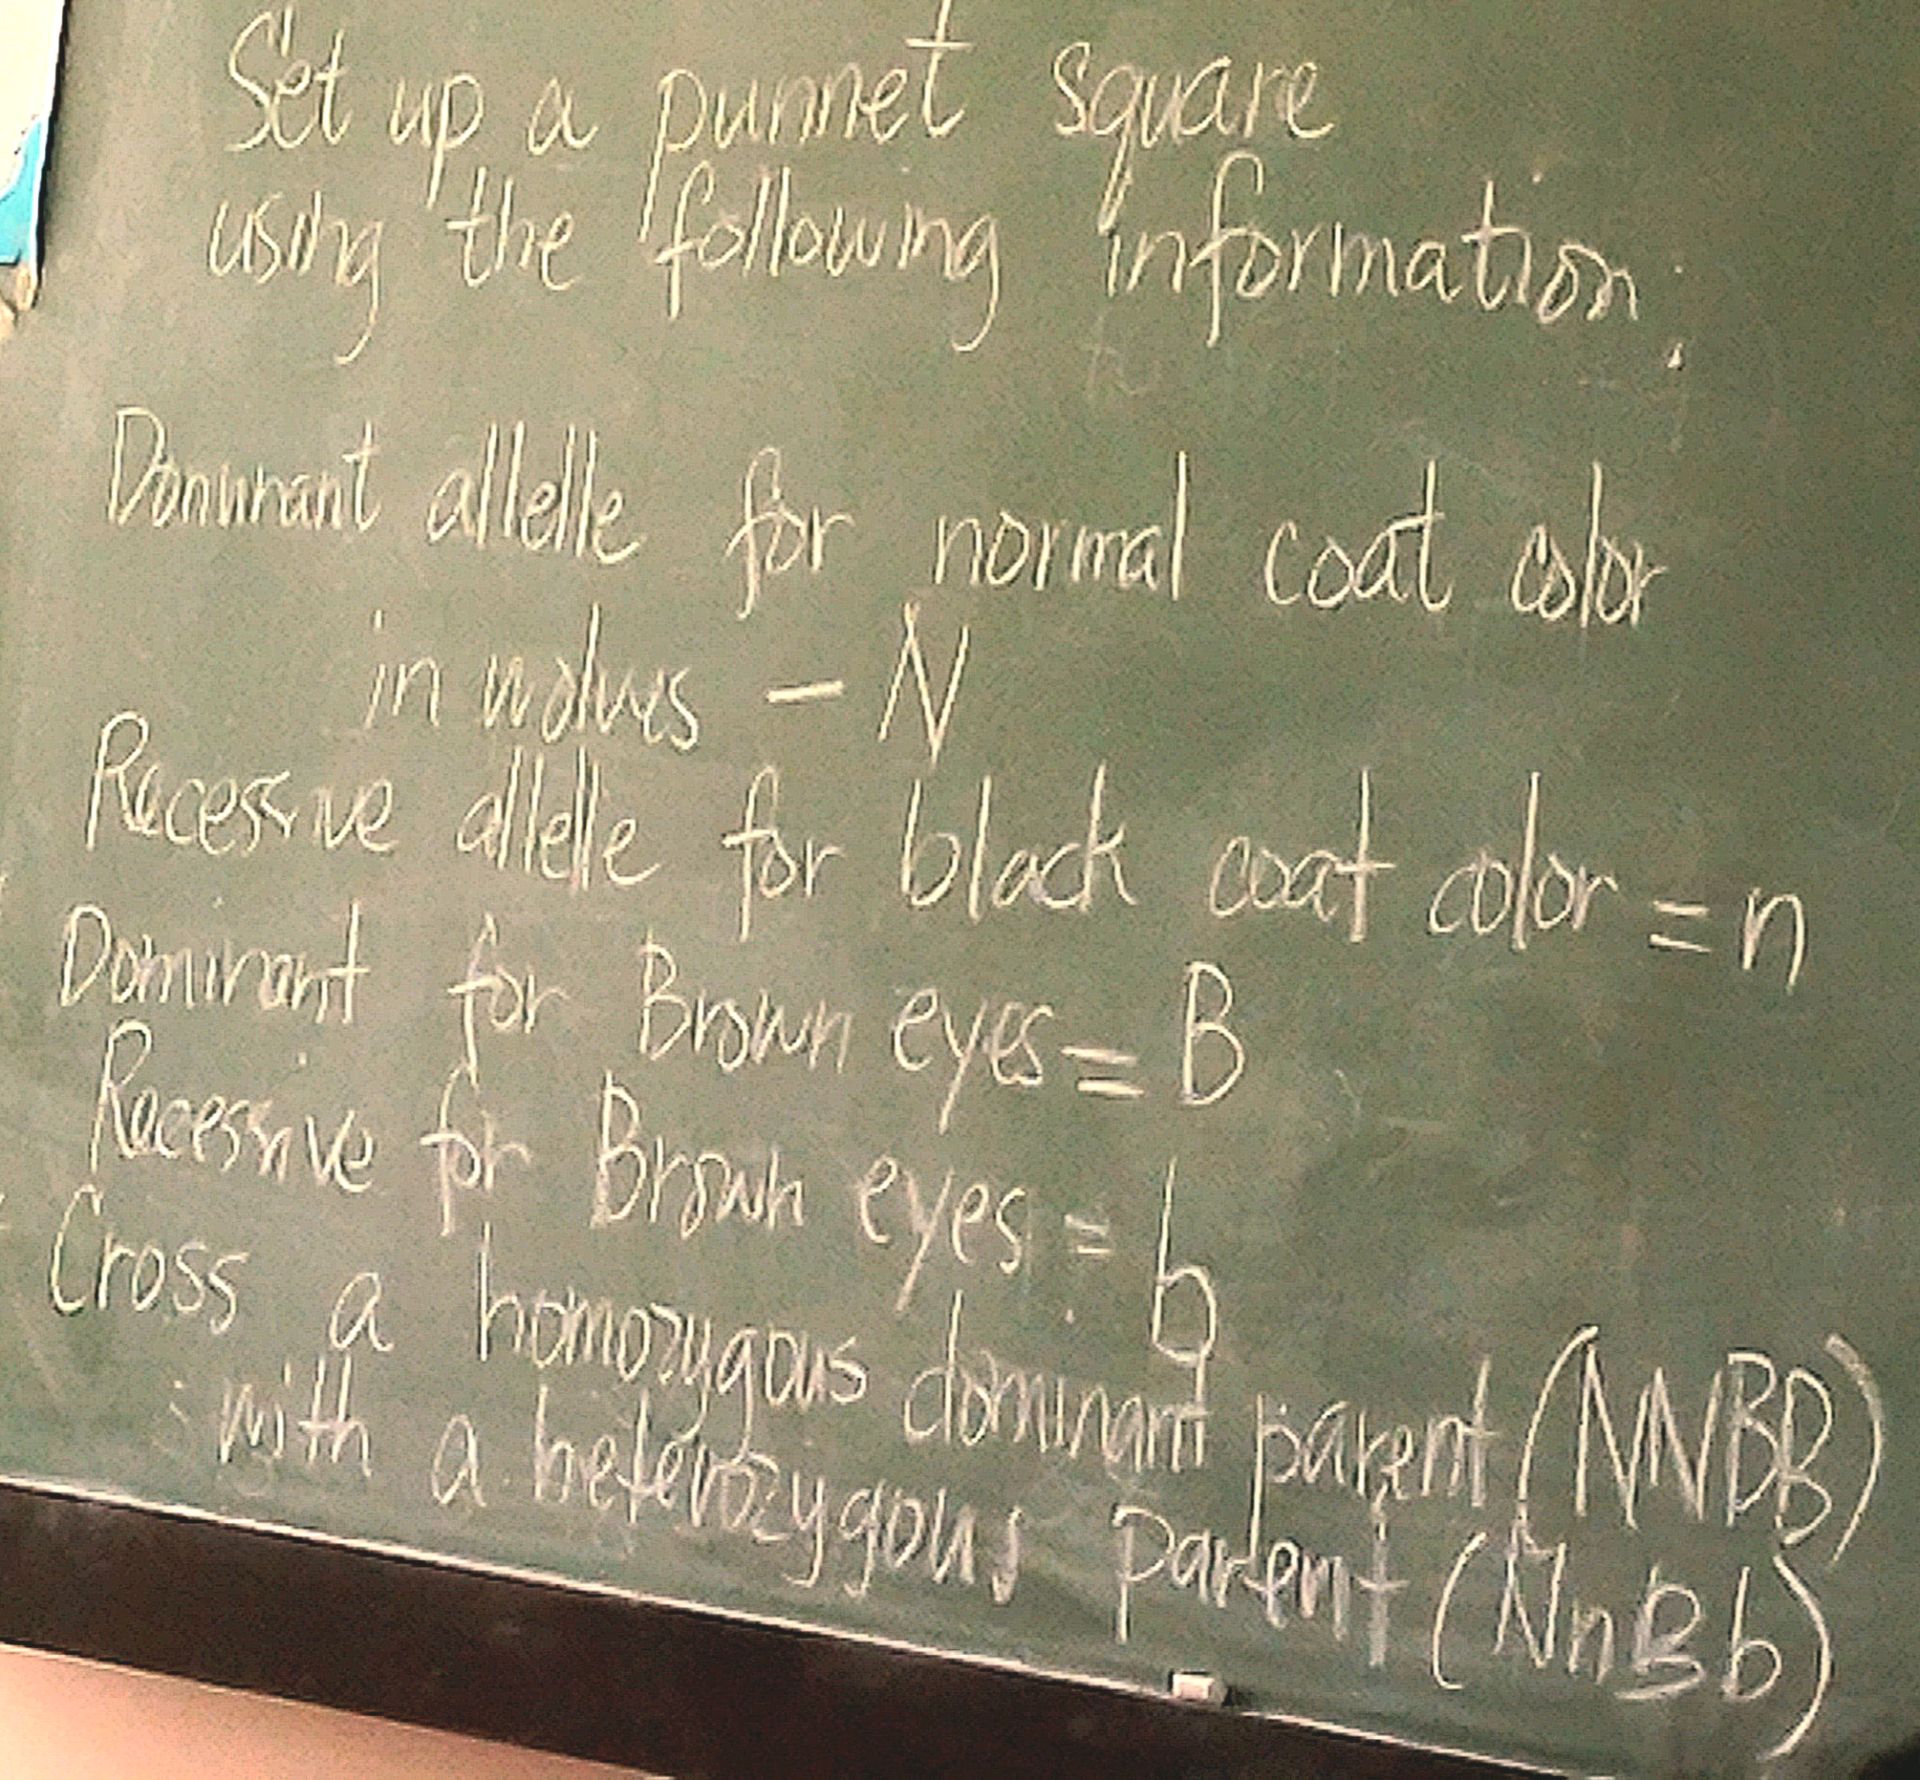 Set up a punnet square
using the following information:
Dominant allelle for normal coat color
in wolves - N
Recessive allelle for black coat color = n
Dominant for Brown eyes = B
Recessive for Brown eyes = b
Cross a homozygous dominant parent (NNBB)
with a heterozygous parent (NnBb)